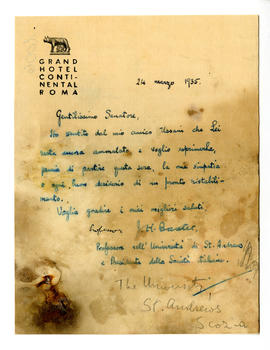 GRAND
HOTEL
CONTI-
NENTAL
ROMA
24 marzo 1935.
Gentilissimo Senatore,
Ho sentito dal mio amico Ussani che Lei
resta ancora ammalato e voglio esprimerLe,
prima di partire questa sera, la mia simpatia
e ogni buon desiderio di un pronto ristabili-
mento.
Voglia gradire i miei migliori saluti.
Professor J. H. Baxter.
Professore nell' Università di St. Andrews,
e Presidente della Società Italiana.
The University
St. Andrews
Scozia